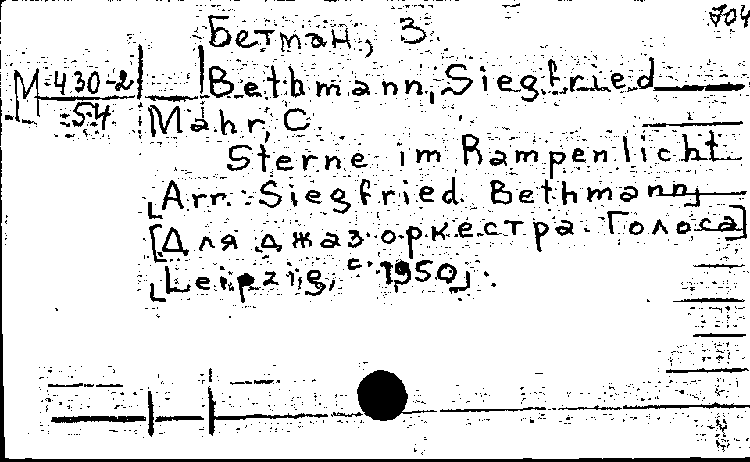 704
Бетман, З.
М 430-2
54
Bethmann, Siegfried
Mahr, C.
Sterne im Rampenlicht
[Arr.: Siegfried Bethmann]
[Для джаз оркестра. Голоса]
[Leipzig, c. 1950].